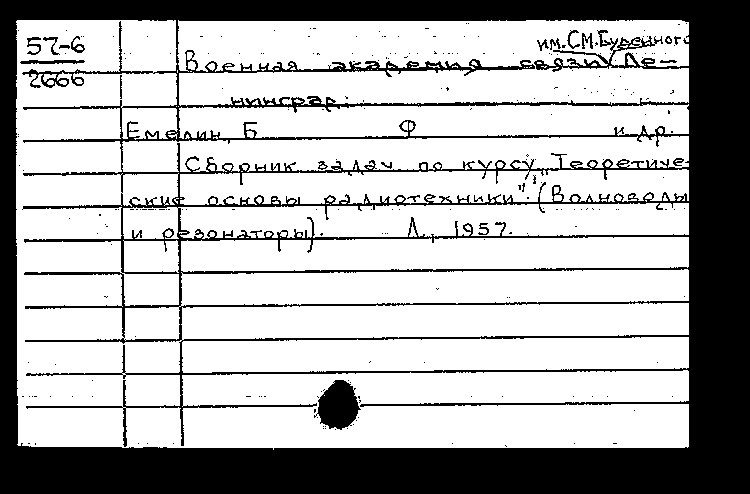 57-6
2666
им. С.М. Буденного
Военная академия связи (Ле-
нинград.
Емелин, Б Ф и др.
Сборник задач по курсу "Теоретиче-
ские основы радиотехники". (Волноводы
и резонаторы). Л., 1957.